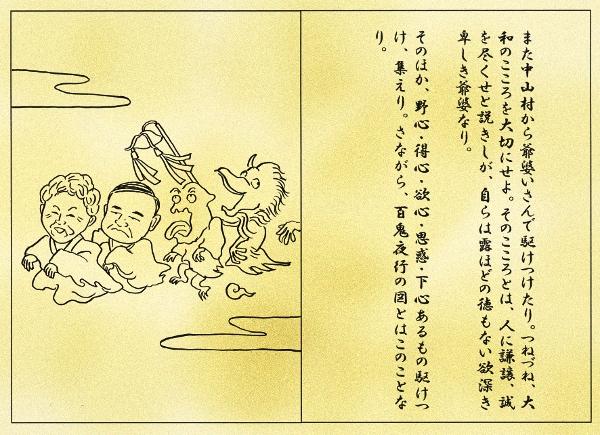 また中山村から爺婆いさんで駆けつけたり。つねづね、大
和のこころを大切にせよ。そのこころとは、人に謙譲、誠
を尽くせと説きしが、自らは露ほどの徳もない欲深き
卑しき爺婆なり。
そのほか、野心・得心・欲心・思惑・下心あるもの駆けつ
け、集えり。さながら、百鬼夜行の図とはこのことな
り。